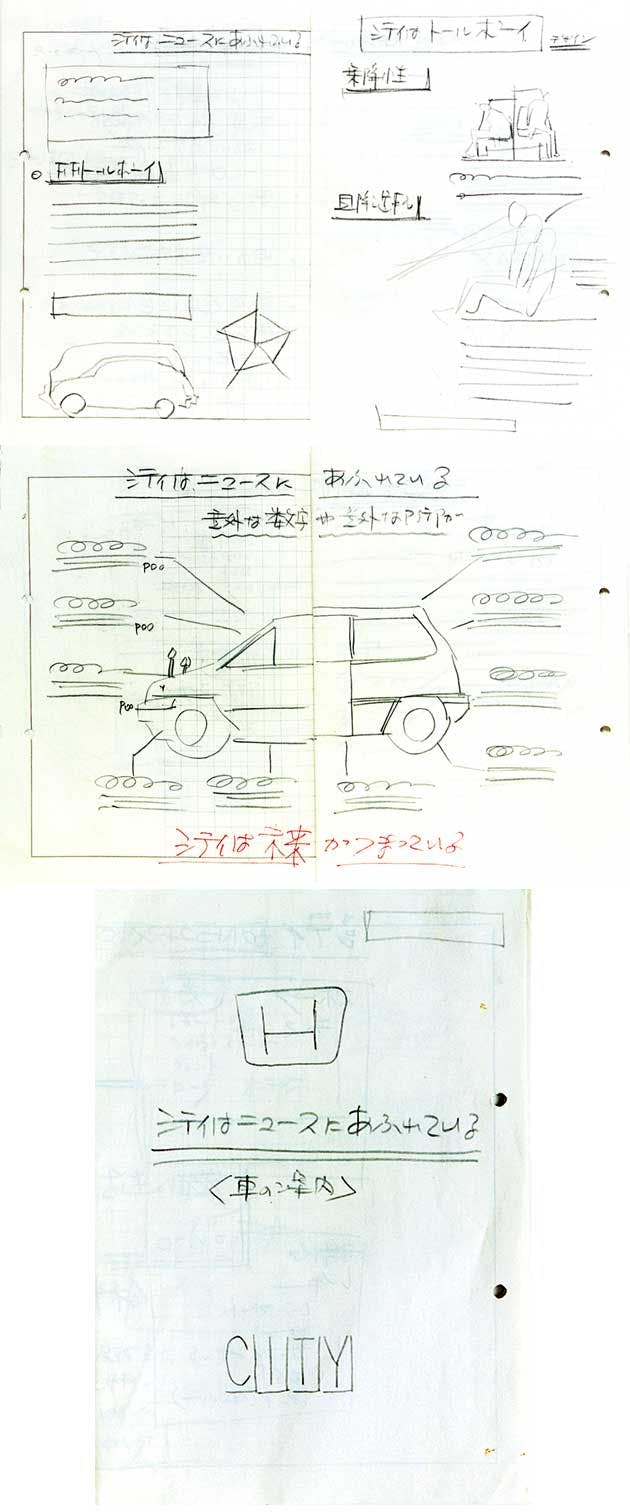 シティは ニュースにあふれている
FFトールボーイ
シティは トールボーイ デザイン
乗降性
シティは、ニュースに あふれている
意外な数字や意外なアイデアが
POO
POO
POO
シティは 未来が つまっている
H
シティはニュースにあふれている
〈車のご案内〉
CITY